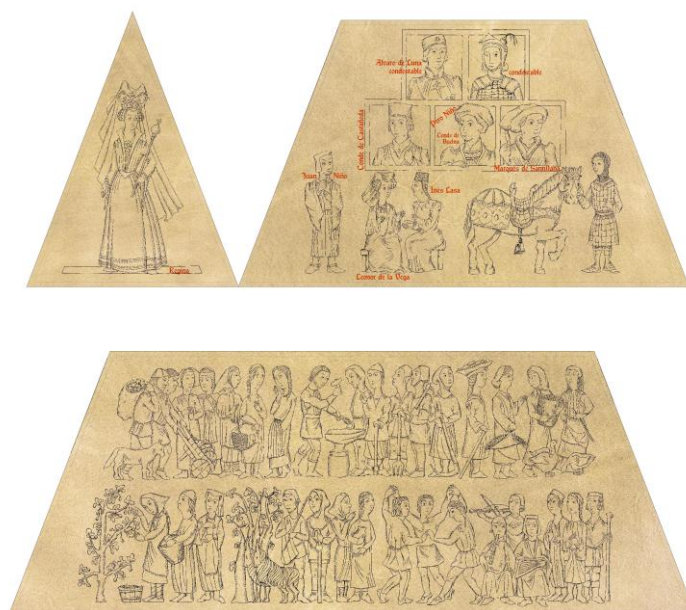 Regina
Alvaro de Luna
condestable
condestable
Conde de Castañeda
Pero Niño
Conde de
Buelna
Marques de Santillana
Juan Niño
Ines Lasa
Leonor de la Vega